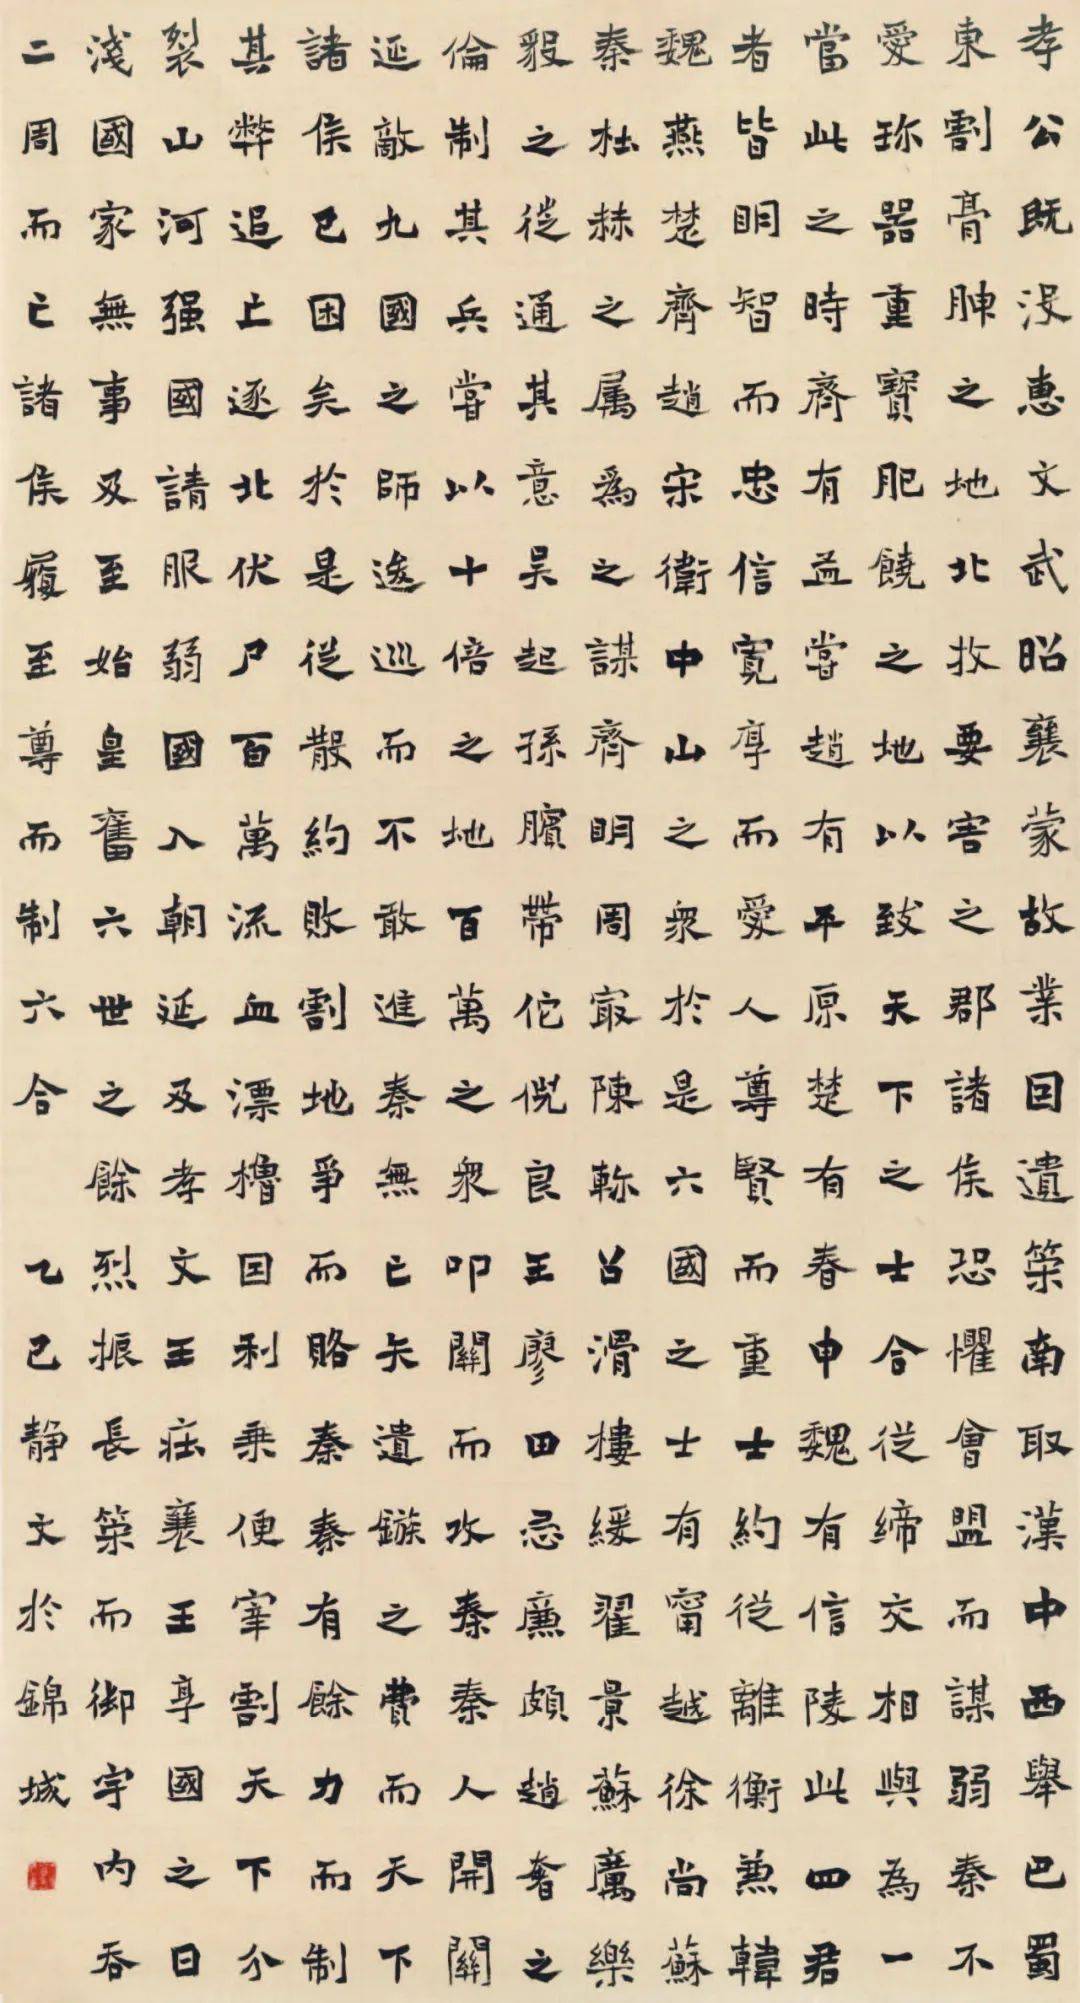 孝公既没惠文武昭襄蒙故業因遺策南取漢中西舉巴蜀
東割膏腴之地北收要害之郡諸侯恐懼會盟而謀弱秦不
愛珎器重寶肥饒之地以致天下之士合從締交相與為一
當此之時齊有孟嘗趙有平原楚有春申魏有信陵此四君
者皆明智而忠信寬厚而愛人尊賢而重士約從離衡兼韓
魏燕楚齊趙宋衛中山之衆於是六國之士有甯越徐尚蘇
秦杜赫之属為之謀齊明周最陳軫召滑樓緩翟景蘇厲樂
毅之徒通其意吴起孫臏帶佗倪良王廖田忌廉頗趙奢之
倫制其兵嘗以十倍之地百萬之衆叩關而攻秦秦人開關
延敵九國之師逡巡而不敢進秦無亡矢遺鏃之費而天下
諸侯已困矣於是從散約敗割地爭而賂秦秦有餘力而制
其弊追亡逐北伏尸百萬流血漂櫓因利乗便宰割天下分
裂山河强國請服弱國入朝延及孝文王莊襄王享國之日
淺國家無事及至始皇奮六世之餘烈振長策而御宇内吞
二周而亡諸侯履至尊而制六合 乙巳静文於錦城